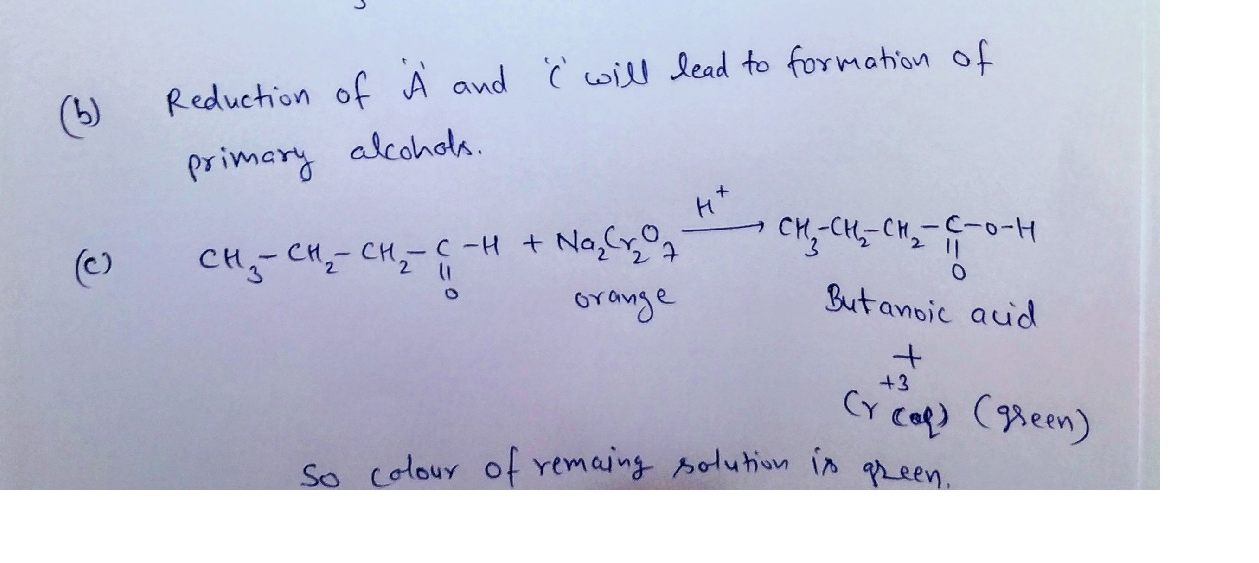 (b) Reduction of 'A' and 'C' will lead to formation of
primary alcohols.
H⁺
(c) CH₃-CH₂-CH₂-C-H + Na₂Cr₂O₇ → CH₃-CH₂-CH₂-C-O-H
|| ||
O O
orange Butanoic acid
+
+3
Cr (aq) (green)
So colour of remaing solution is green.